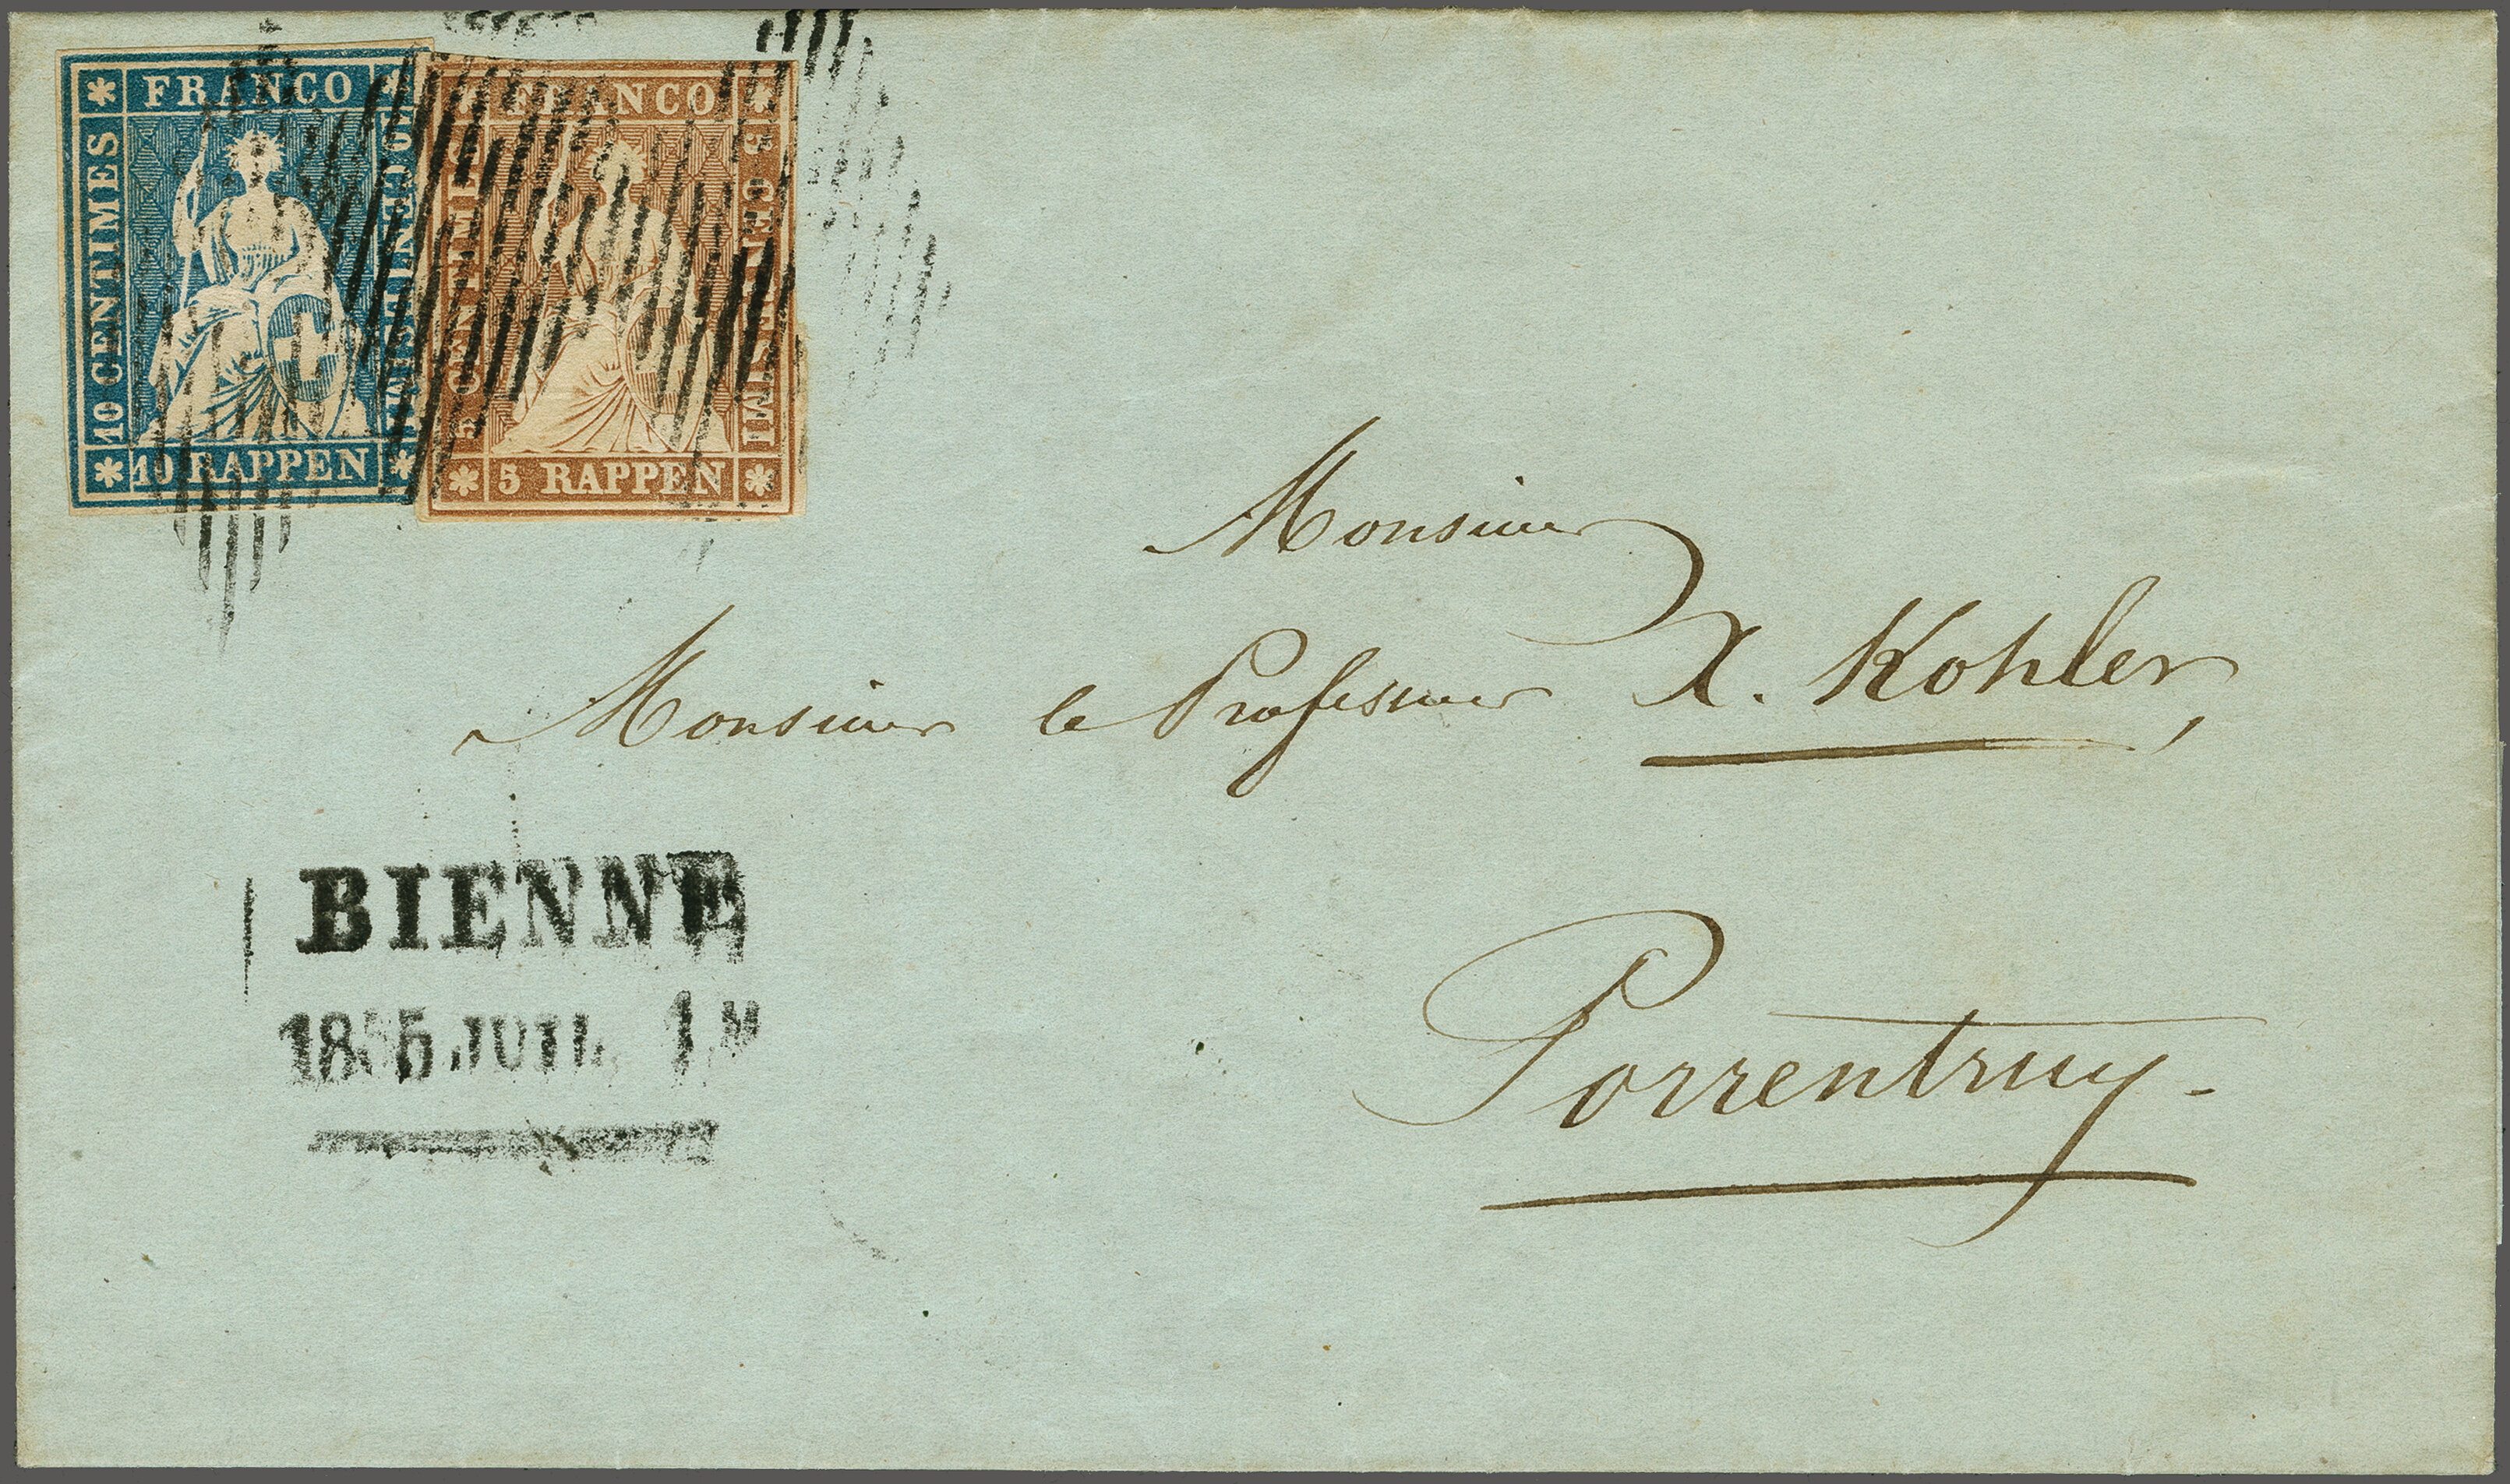 FRANCO
10 CENTIMES
10 CENTESIMI
10 RAPPEN
FRANCO
5 CENTIMES
5 CENTESIMI
5 RAPPEN
Monsieur
Monsieur le Professeur X. Kohler,
BIENNE
1855 JUIL.
Porrentruy-